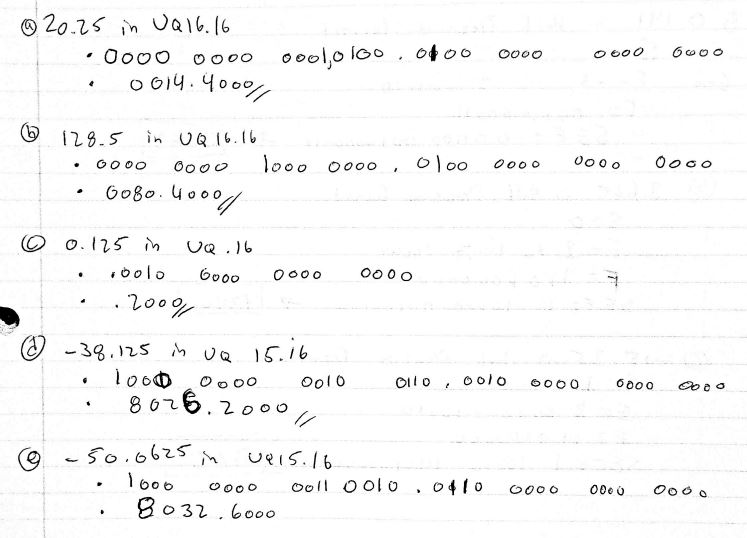 (a) 20.25 in UQ16.16
• 0000 0000 0001,0100 . 0100 0000 0000 0000
• 0014.4000//
(b) 128.5 in UQ16.16
• 0000 0000 1000 0000 . 0100 0000 0000 0000
• 0080.4000//
(c) 0.125 in UQ.16
• .0010 0000 0000 0000
• .2000//
(d) -38.125 in UQ 15.16
• 1000 0000 0010 0110 . 0010 0000 0000 0000
• 8026.2000//
(e) -50.0625 in UQ15.16
• 1000 0000 0011 0010 . 0110 0000 0000 0000
• 8032.6000